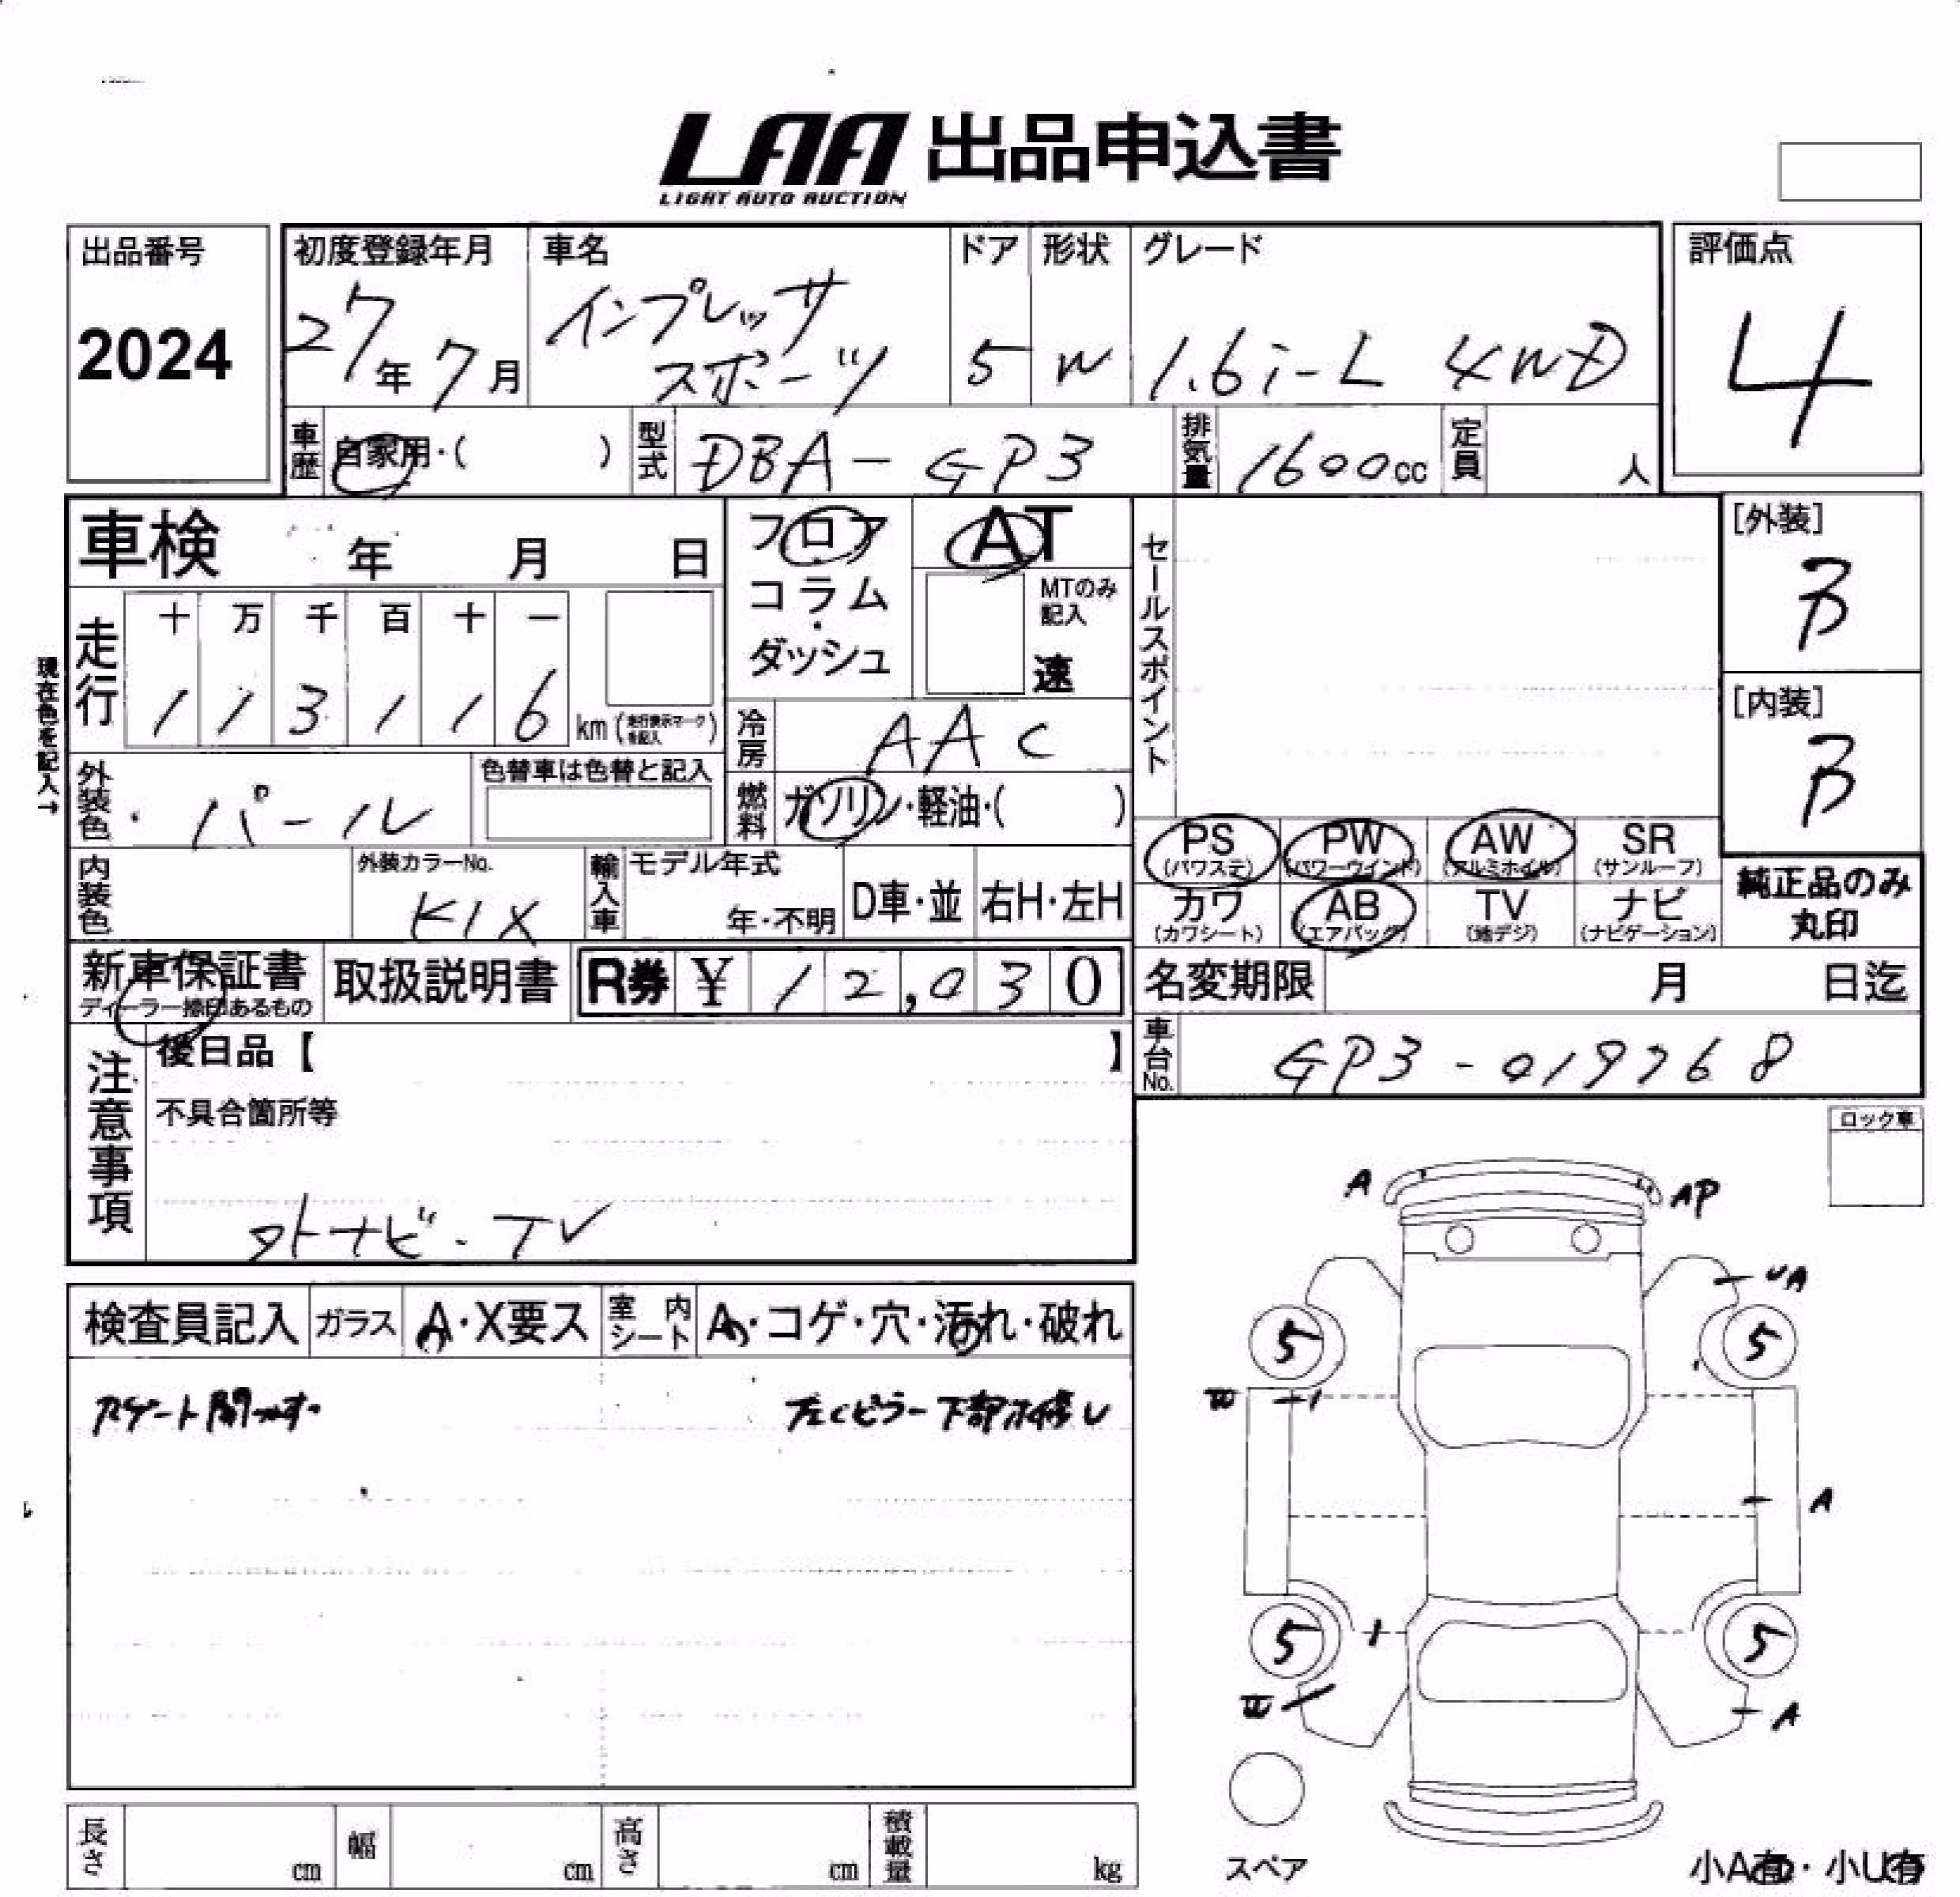 LAA 出品申込書
LIGHT AUTO AUCTION
出品番号
2024
初度登録年月
27年 7月
車名
インプレッサ
スポーツ
ドア
5
形状
W
グレード
1.6i-L 4WD
評価点
4
車歴 自家用・( )
型式 DBA-GP3
排気量 1600cc
定員 人
車検 年 月 日
フロア・コラム・ダッシュ
AT
MTのみ記入
速
セールスポイント
[外装]
B
[内装]
B
現在色を記入→
走行
十 万 千 百 十 一
1 1 3 1 1 6 km (走行表示マークを記入)
冷房 AAC
外装色 パール
色替車は色替と記入
燃料 ガソリン・軽油・( )
PS (パワステ)
PW (パワーウインド)
AW (アルミホイル)
SR (サンルーフ)
カワ (カワシート)
AB (エアバッグ)
TV (地デジ)
ナビ (ナビゲーション)
純正品のみ
丸印
内装色
外装カラーNo.
K1X
輸入車
モデル年式
年・不明
D車・並
右H・左H
新車保証書
ディーラー捺印あるもの
取扱説明書
R券 ¥ 12,030
名変期限 月 日迄
車台No. GP3-019768
注意事項
後日品【 】
不具合箇所等
外ナビ・TV
ロック車
検査員記入
ガラス A・X要ス
室内シート A・コゲ・穴・汚れ・破れ
左Cピラー下部
A
AP
UA
5
5
A
5
5
A
スペア
長さ cm
幅 cm
高さ cm
積載量 kg
小A有・小U有